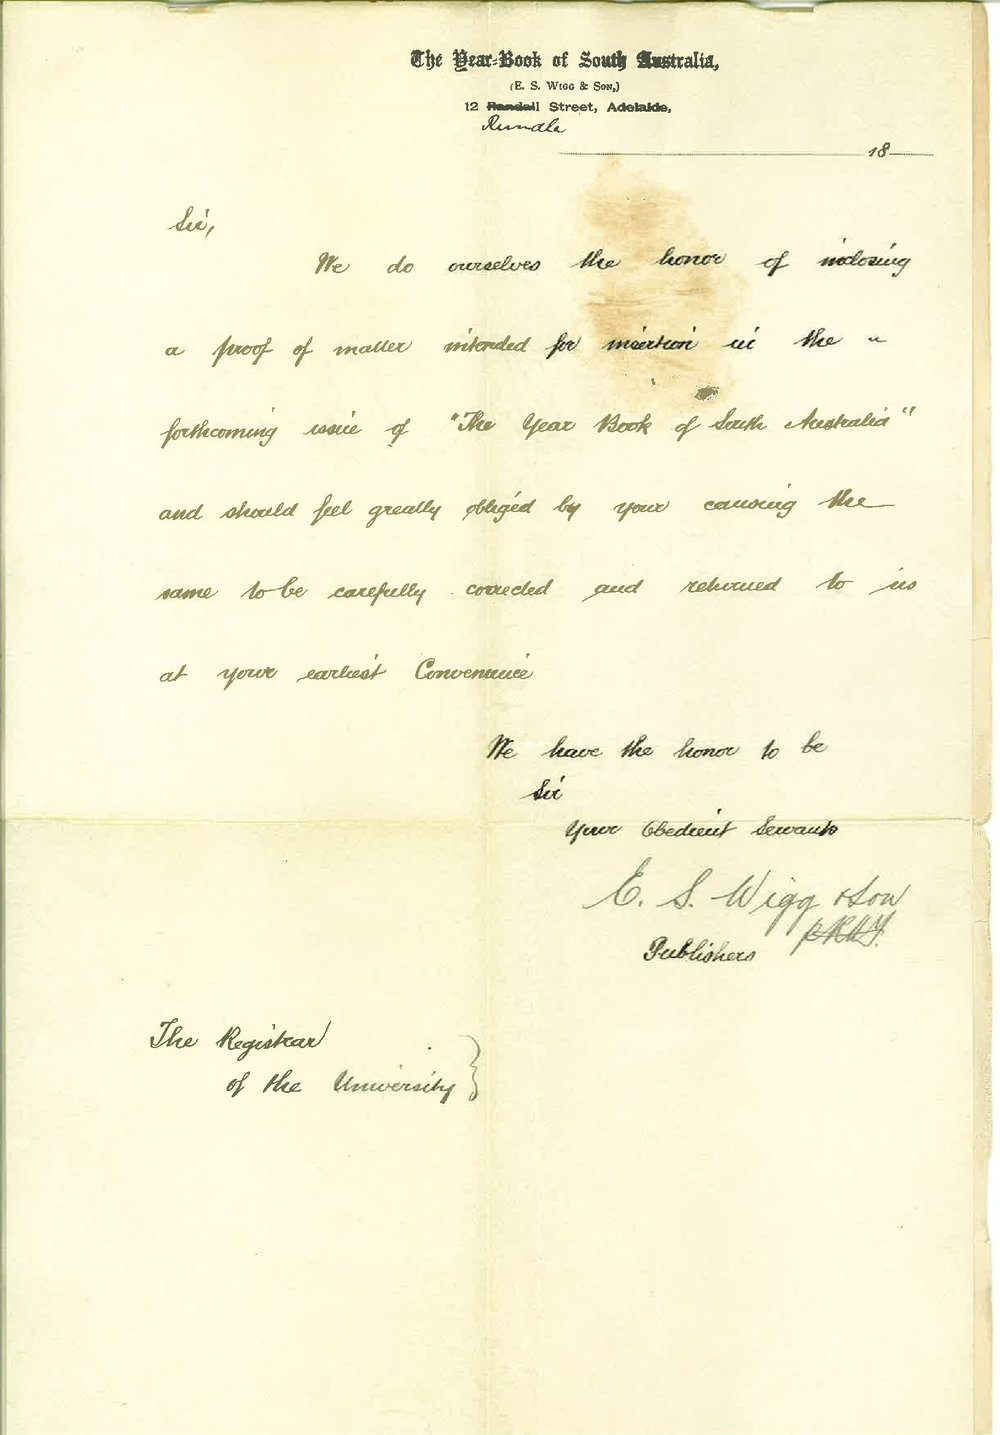 The Year-Book of South Australia,
(E. S. Wigg & Son,)
12 Randall Street, Adelaide,
Rundle
18
Sir,
We do ourselves the honor of inclosing
a proof of matter intended for insertion in the
forthcoming issue of "The Year Book of South Australia"
and should feel greatly obliged by your causing the
same to be carefully corrected and returned to us
at your earliest Convenience
We have the honor to be
Sir
Your Obedient Servants
E. S. Wigg & Son
Publishers
The Registrar
of the University